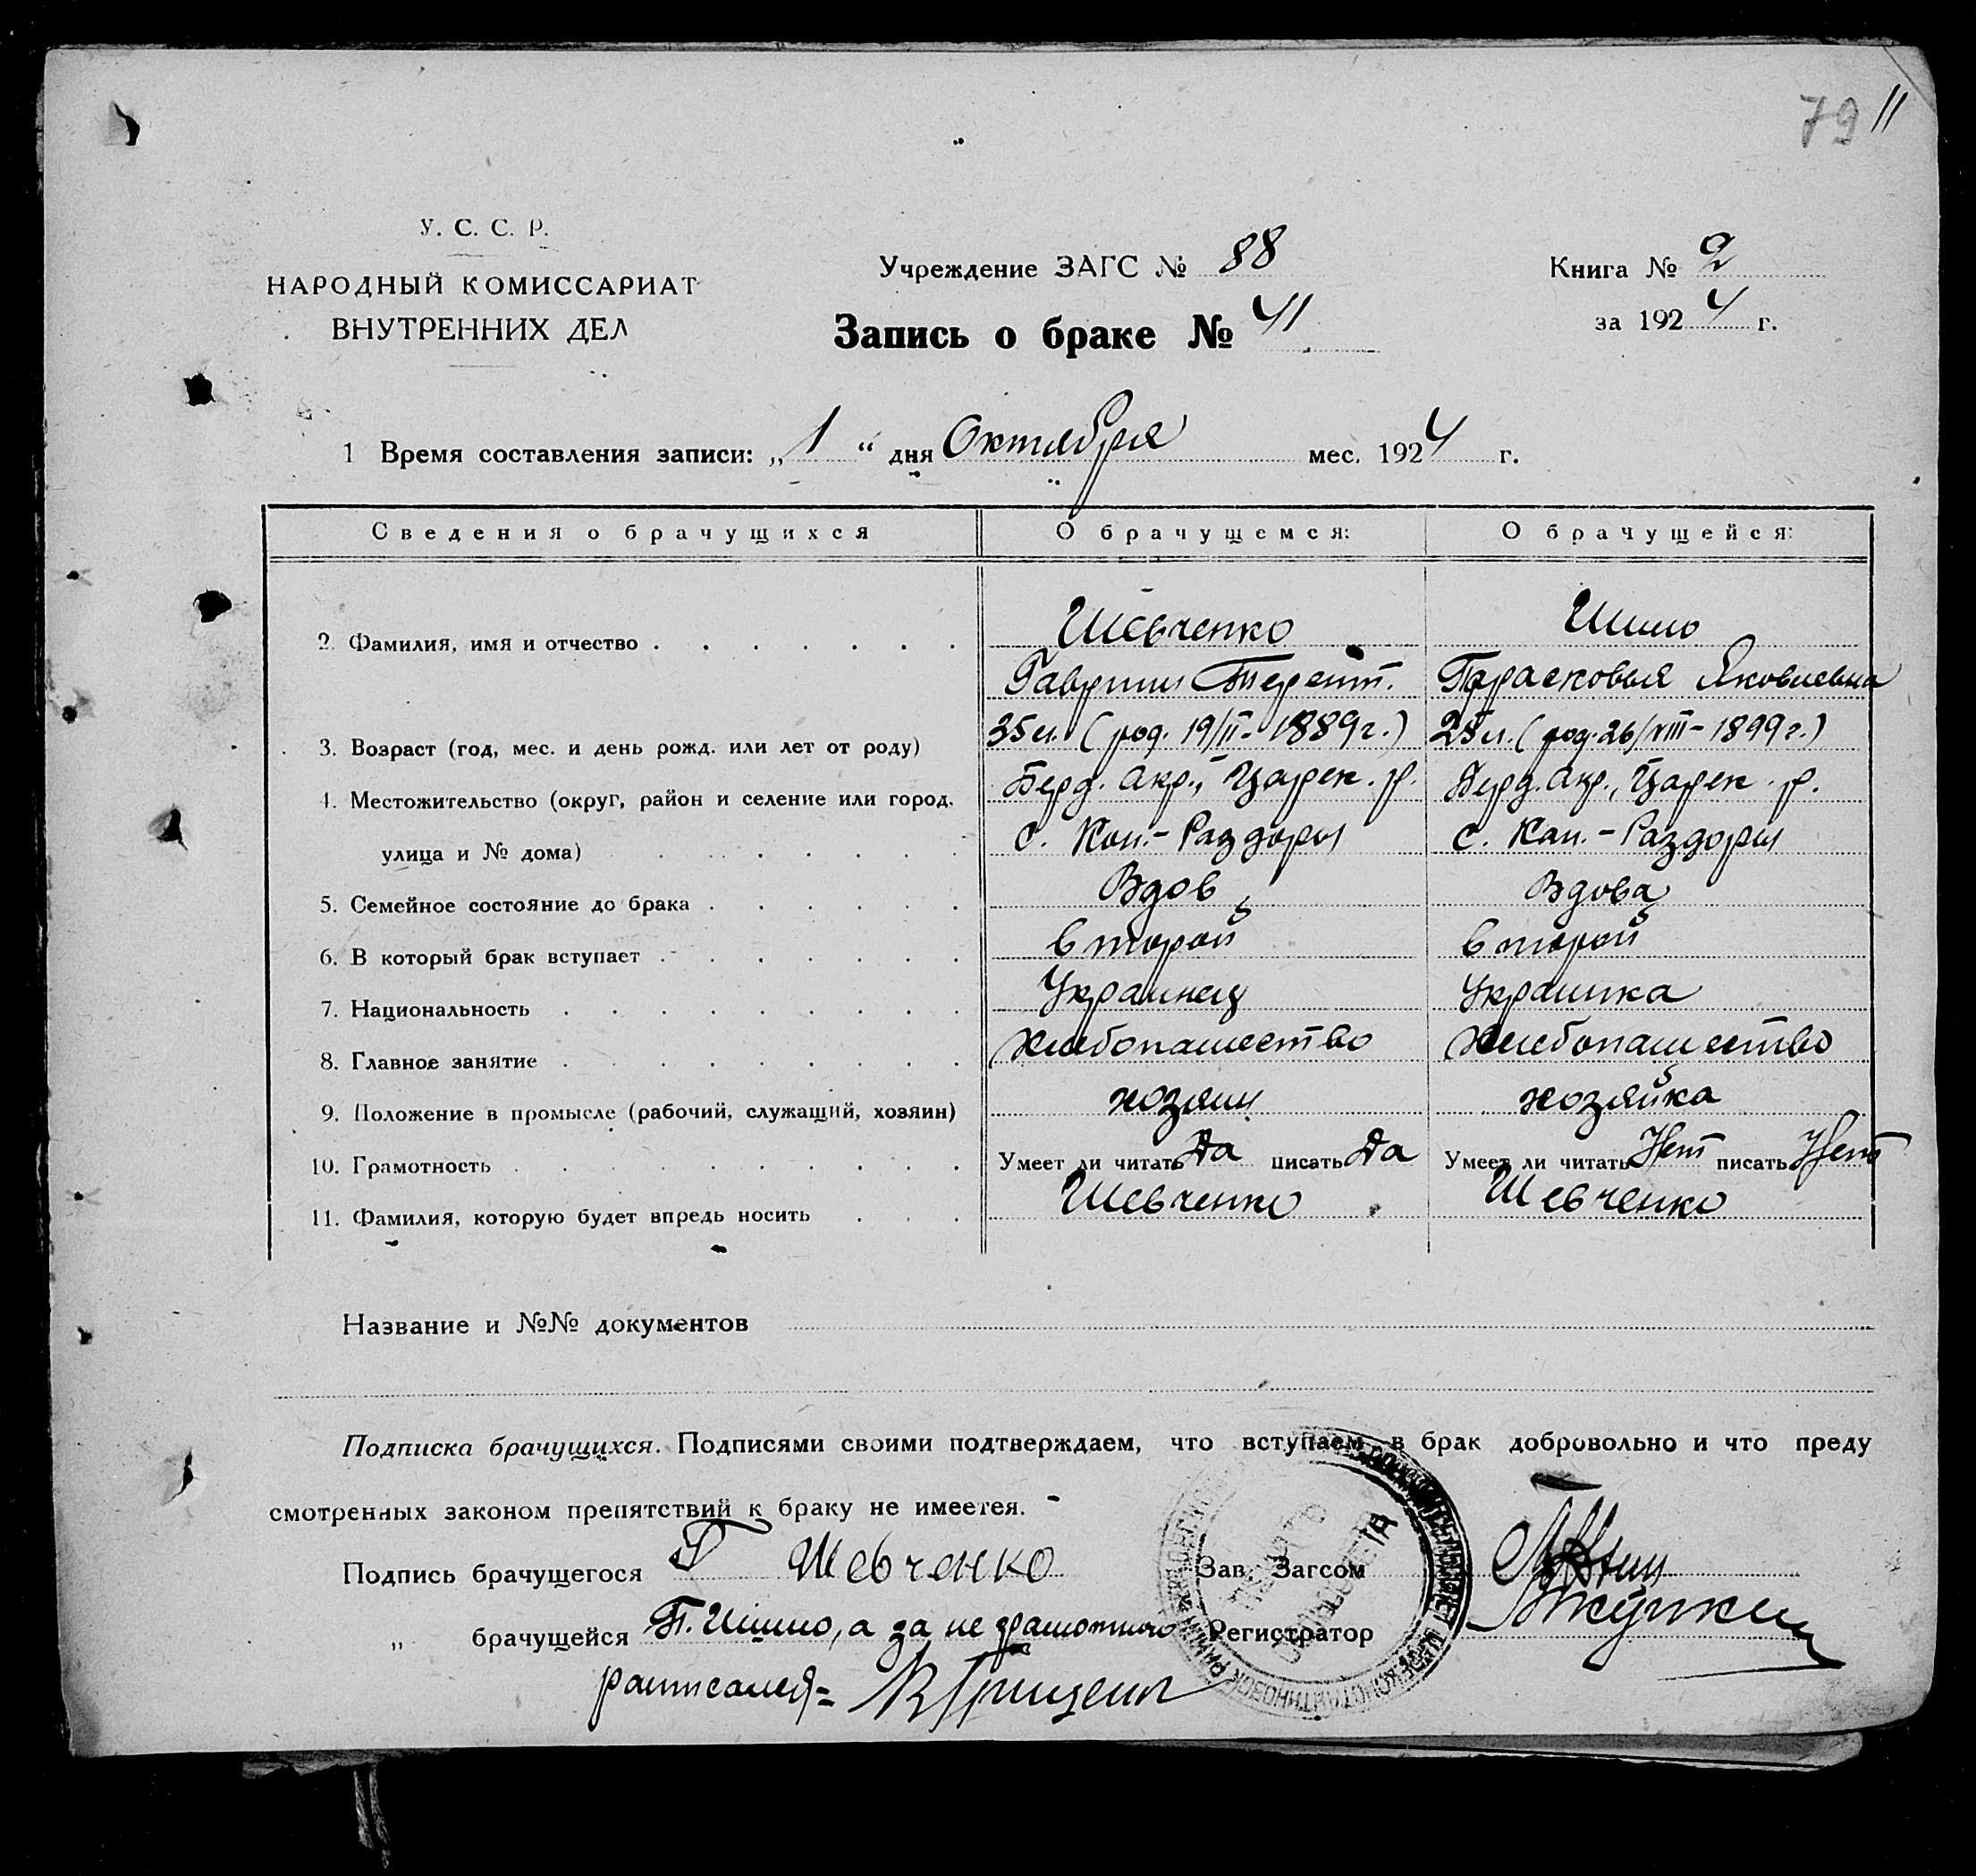 79 11
У. С. С. Р.
НАРОДНЫЙ КОМИССАРИАТ
ВНУТРЕННИХ ДЕЛ
Учреждение ЗАГС № 88
Запись о браке № 41
Книга № 2
за 1924 г.
1 Время составления записи: „1“ дня Октября мес. 1924 г.
Сведения о брачущихся О брачущемся: О брачущейся:
2. Фамилия, имя и отчество Шевченко Шило
Гаврииил Терент. Парасковья Яковлевна
3. Возраст (год, мес. и день рожд. или лет от роду) 35 л. (род. 19/II-1889 г.) 25 л. (род. 26/VIII-1899 г.)
4. Местожительство (округ, район и селение или город. Берд. Окр., Царек. р. Берд. Окр., Царек. р.
улица и № дома) с. Кон.-Раздоры с. Кон.-Раздоры
5. Семейное состояние до брака Вдов Вдова
6. В который брак вступает второй второй
7. Национальность Украинец Украинка
8. Главное занятие Хлебопашество Хлебопашество
9. Положение в промысле (рабочий, служащий, хозяин) хозяин хозяйка
10. Грамотность Умеет ли читать Да писать Да Умеет ли читать Нет писать Нет
11. Фамилия, которую будет впредь носить Шевченко Шевченко
Название и №№ документов
Подписка брачущихся. Подписями своими подтверждаем, что вступаем в брак добровольно и что преду
смотренных законом препятствий к браку не имеется.
Подпись брачущегося Г Шевченко Зав. Загсом
„ брачущейся П. Шило, а за не грамотного Регистратор
расписался=